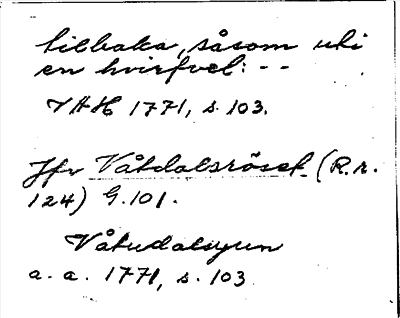 tillbaka, såsom uti
en hvirfvel: - -
VHH 1771, s. 103.
Jfr Våtdalsröset (R.r.
124) G. 101.
Våtudalsyun
a. a. 1771, s. 103